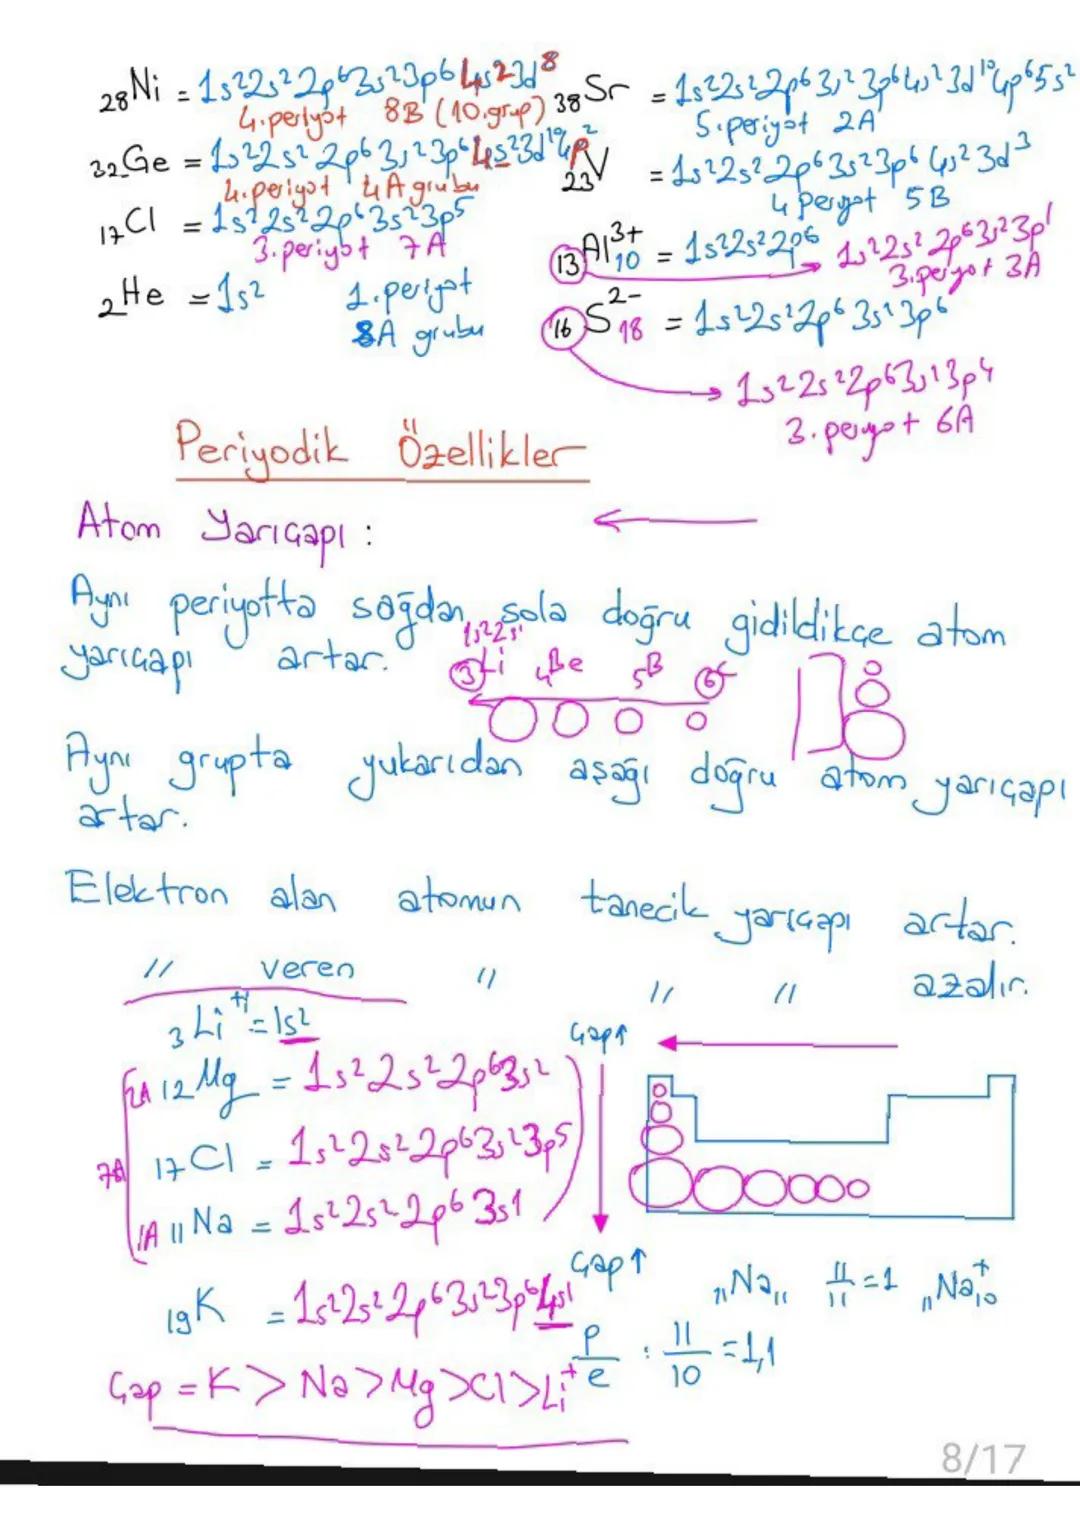 ₂₈Ni = 1s²2s²2p⁶3s²3p⁶4s²3d⁸
4.periyot 8B (10.grup)
₃₈Sr = 1s²2s²2p⁶3s²3p⁶4s²3d¹⁰4p⁶5s²
5.periyot 2A
₃₂Ge = 1s²2s²2p⁶3s²3p⁶4s²3d¹⁰4p²
4.periyot 4A grubu
₂₃V = 1s²2s²2p⁶3s²3p⁶4s²3d³
4 periyot 5B
₁₇Cl = 1s²2s²2p⁶3s²3p⁵
3.periyot 7A
₁₃Al³⁺₁₀ = 1s²2s²2p⁶ 1s²2s²2p⁶3s²3p¹
3.periyot 3A
₂He = 1s² 1.periyot
8A grubu
₁₆S²⁻₁₈ = 1s²2s²2p⁶3s²3p⁶
1s²2s²2p⁶3s²3p⁴
3.periyot 6A
Periyodik Özellikler
Atom Yarıçapı :
Aynı periyotta sağdan sola doğru gidildikçe atom
yarıçapı artar.
1s²2s¹
₃Li ₄Be ₅B ₆C
Aynı grupta yukarıdan aşağı doğru atom yarıçapı
artar.
Elektron alan atomun tanecik yarıçapı artar.
" veren " " " azalır.
₃Li⁺¹ = 1s²
Çap↑
2A ₁₂Mg = 1s²2s²2p⁶3s²
7A ₁₇Cl = 1s²2s²2p⁶3s²3p⁵
1A ₁₁Na = 1s²2s²2p⁶3s1
Çap↑
₁₉K = 1s²2s²2p⁶3s²3p⁶4s¹
₁₁Na₁₁ 11/11 = 1 ₁₁Na⁺₁₀
p/e : 11/10 = 1,1
Çap = K > Na > Mg > Cl > Li⁺
8/17